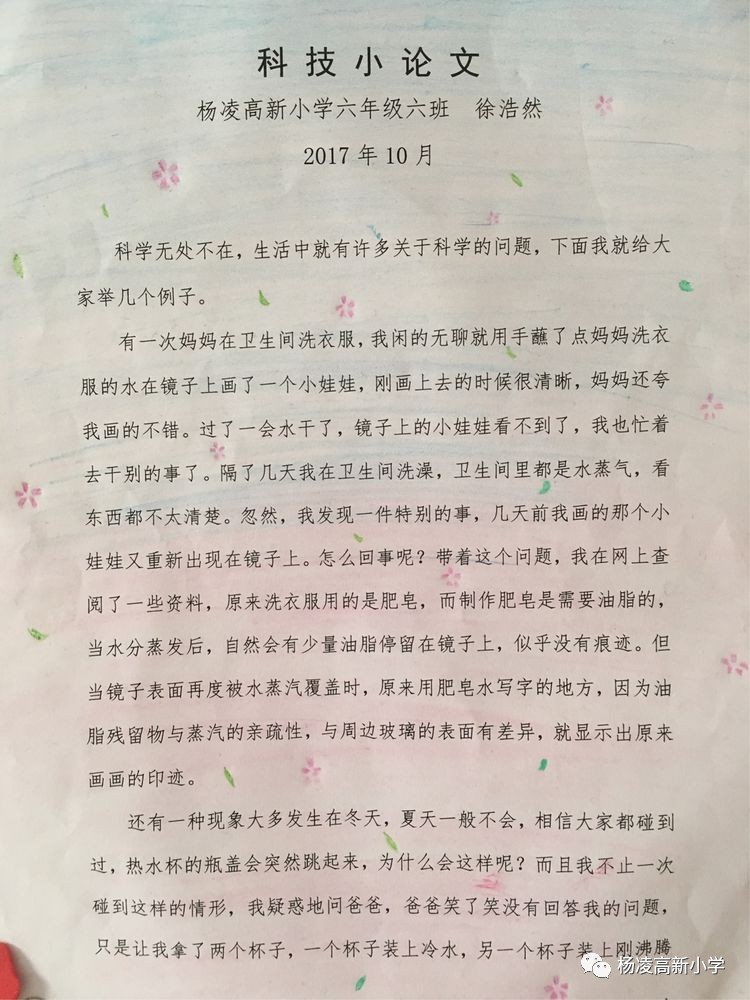 科技小论文
杨凌高新小学六年级六班 徐浩然
2017年10月
科学无处不在，生活中就有许多关于科学的问题，下面我就给大
家举几个例子。
有一次妈妈在卫生间洗衣服，我闲的无聊就用手蘸了点妈妈洗衣
服的水在镜子上画了一个小娃娃，刚画上去的时候很清晰，妈妈还夸
我画的不错。过了一会水干了，镜子上的小娃娃看不到了，我也忙着
去干别的事了。隔了几天我在卫生间洗澡，卫生间里都是水蒸气，看
东西都不太清楚。忽然，我发现一件特别的事，几天前我画的那个小
娃娃又重新出现在镜子上。怎么回事呢？带着这个问题，我在网上查
阅了一些资料，原来洗衣服用的是肥皂，而制作肥皂是需要油脂的，
当水分蒸发后，自然会有少量油脂停留在镜子上，似乎没有痕迹。但
当镜子表面再度被水蒸汽覆盖时，原来用肥皂水写字的地方，因为油
脂残留物与蒸汽的亲疏性，与周边玻璃的表面有差异，就显示出原来
画画的印迹。
还有一种现象大多发生在冬天，夏天一般不会，相信大家都碰到
过，热水杯的瓶盖会突然跳起来，为什么会这样呢？而且我不止一次
碰到这样的情形，我疑惑地问爸爸，爸爸笑了笑没有回答我的问题，
只是让我拿了两个杯子，一个杯子装上冷水，另一个杯子装上刚沸腾
杨凌高新小学